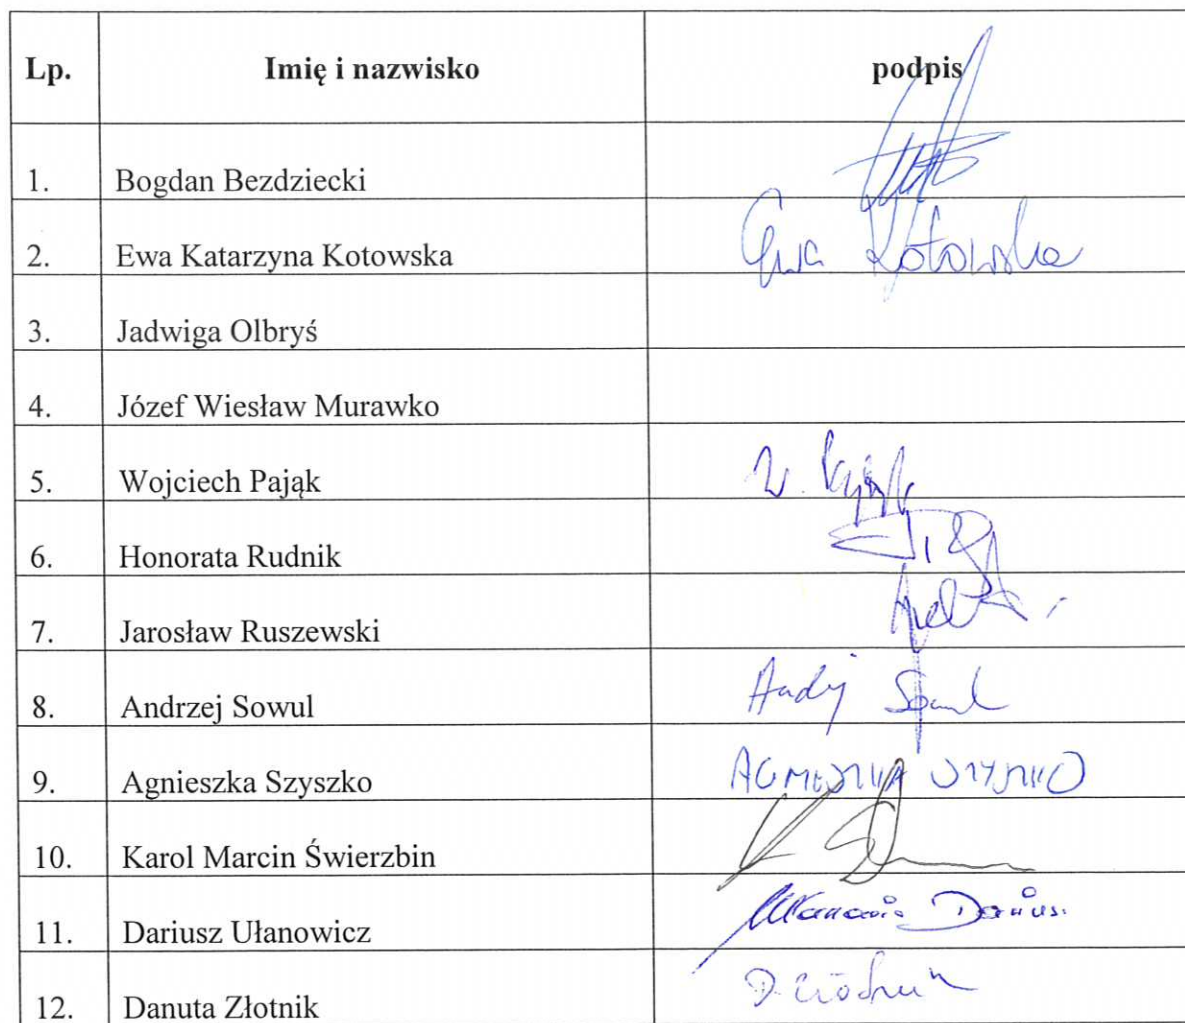 Lp. Imię i nazwisko podpis
1. Bogdan Bezdziecki
2. Ewa Katarzyna Kotowska Ewa Kotowska
3. Jadwiga Olbryś
4. Józef Wiesław Murawko
5. Wojciech Pająk W. Pająk
6. Honorata Rudnik
7. Jarosław Ruszewski
8. Andrzej Sowul Andrzej Sowul
9. Agnieszka Szyszko AGNIESZKA SZYSZKO
10. Karol Marcin Świerzbin
11. Dariusz Ułanowicz Dariusz
12. Danuta Złotnik D. Złotnik